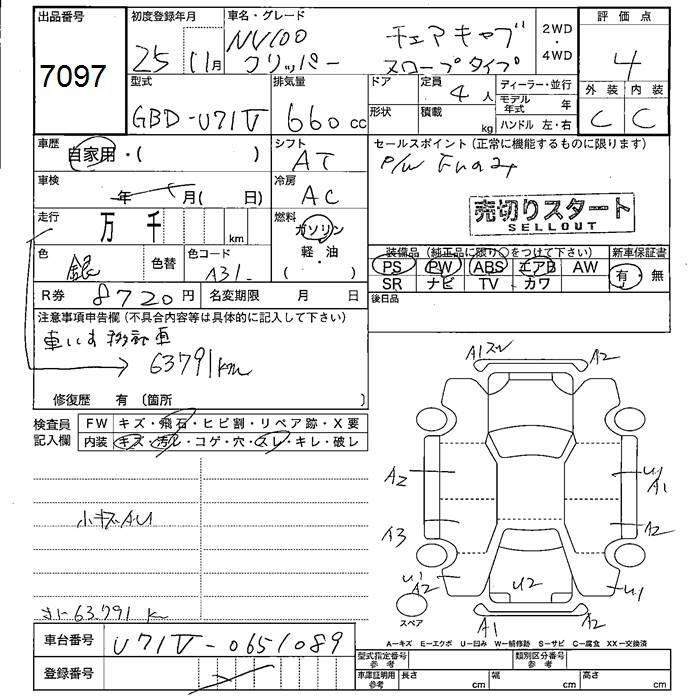 出品番号 初度登録年月 車名・グレード 2WD 評価点
7097 25 11月 NV100 クリッパー チェアキャブ スロープタイプ ・ 4WD 4
型式 排気量 ドア 定員 ディーラー・並行 外装 内装
GBD-U71V 660cc 4人 モデル年式 年 C C
形状 積載 kg ハンドル 左・右
車歴 シフト セールスポイント(正常に機能するものに限ります)
自家用・( ) AT P/W
車検 年 月( 日) 冷房 AC
売切りスタート
SELLOUT
走行 万 千 km 燃料 ガソリン
軽・油
( )
色 銀 色替 色コード A31-
装備品(純正品に限り○をつけて下さい) 新車保証書
PS PW ABS エアB AW 有・無
SR ナビ TV カワ
R券 8720円 名変期限 月 日 後日品
注意事項申告欄(不具合内容等は具体的に記入して下さい)
車いす移動車
63791km
修復歴 有(箇所 )
検査員記入欄 FW キズ・飛石・ヒビ割・リペア跡・X要
内装 キズ・汚レ・コゲ・穴・スレ・キレ・破レ
小キズAU
63.791 km
A1 A2
A2 U1 A1
A3 A2
U1 A2 U2 U1
スペア A1 A2
A−キズ E−エクボ U−凹み W−補修跡 S−サビ C−腐食 XX−交換済
車台番号 U71V-0651089
登録番号
型式指定番号 参考 類別区分番号 参考
車庫証明用 参考 長さ cm 幅 cm 高さ cm